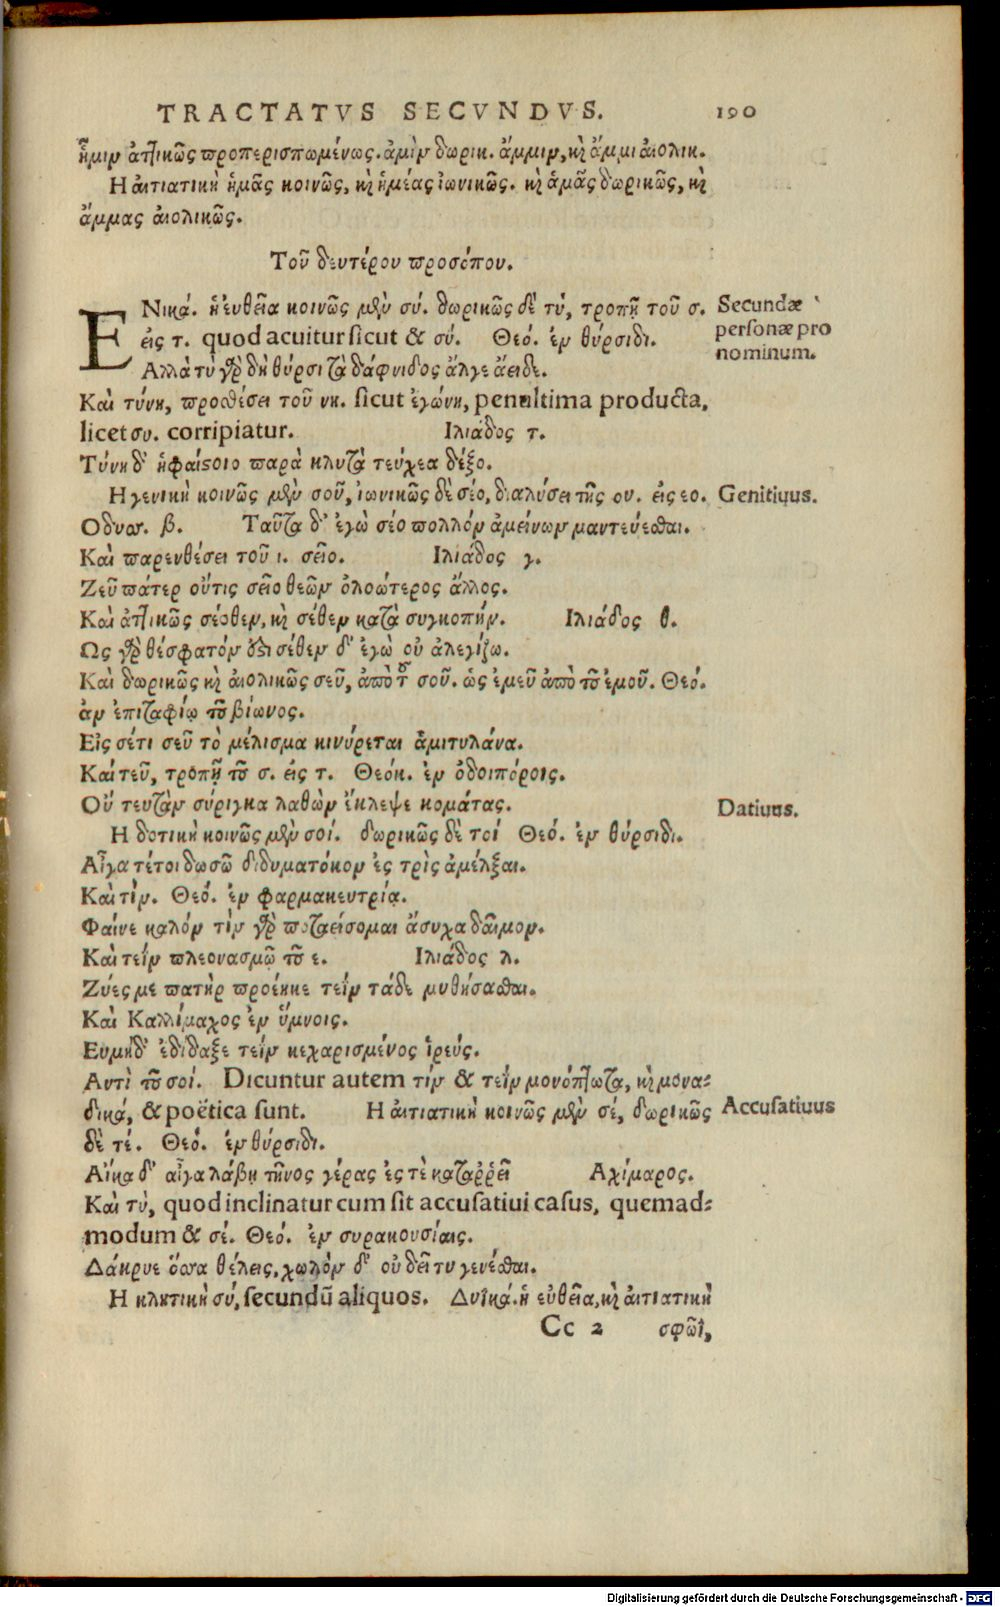 TRACTATVS SECVNDVS. 190
ἧμιν ἀττικῶς προπερισπωμένως. ἀμὶν δωρικ. ἄμμιν, καὶ ἄμμι αἰολικ.
Η αἰτιατικὴ ἡμᾶς κοινῶς, καὶ ἡμέας ἰωνικῶς. καὶ ἁμᾶς δωρικῶς, καὶ
ἄμμας αἰολικῶς.
Τοῦ δευτέρου προσώπου.
ΕΝικά. ἡ εὐθεῖα κοινῶς μὲν σύ. δωρικῶς δὲ τύ, τροπῇ τοῦ σ.
εἰς τ. quod acuitur sicut & σύ. Θεό. ἐν θύρσιδι.
Αλλὰ τὺ γὰρ δὴ θύρσι τὰ δάφνιδος ἄλγε ἄειδε.
Καὶ τύνη, προσθέσει τοῦ νη. sicut ἐγώνη, penultima producta,
licet συ. corripiatur. Ιλιάδος τ.
Τύνη δ' ἡφαίστοιο παρὰ κλυτὰ τεύχεα δέξο.
Η γενικὴ κοινῶς μὲν σοῦ, ἰωνικῶς δὲ σέο, διαλύσει τῆς ου. εἰς εο.
Οδυσ. β. Ταῦτα δ' ἐγὼ σέο πολλὸν ἀμείνων μαντεύεσθαι.
Καὶ παρενθέσει τοῦ ι. σεῖο. Ιλιάδος γ.
Ζεῦ πάτερ οὔτις σεῖο θεῶν ὀλοώτερος ἄλλος.
Καὶ ἀττικῶς σέοθεν, καὶ σέθεν κατὰ συγκοπήν. Ιλιάδος θ.
Ως γὰρ θέσφατόν ἐστι σέθεν δ' ἐγὼ οὐ ἀλεγίζω.
Καὶ δωρικῶς καὶ αἰολικῶς σεῦ, ἀπὸ τοῦ σοῦ. ὡς ἐμεῦ ἀπὸ τοῦ ἐμοῦ. Θεό.
ἀν ἐπιταφίῳ τοῦ βίωνος.
Εἰς σέτι σεῦ τὸ μέλισμα κινύρεται ἁμιτυλάνα.
Καὶ τεῦ, τροπῇ τοῦ σ. εἰς τ. Θεόκ. ἐν ὁδοιπόροις.
Οὔ τευτὰν σύριγκα λαθὼν ἔκλεψε κομάτας.
Η δοτικὴ κοινῶς μὲν σοί. δωρικῶς δὲ τοί Θεό. ἐν θύρσιδι.
Αἶγα τέτοι δωσῶ διδυματόκον ἐς τρὶς ἀμέλξαι.
Καὶ τὶν. Θεό. ἐν φαρμακευτρίᾳ.
Φαίνε καλόν τὶν γὰρ ποταείσομαι ἄσυχα δαῖμον.
Καὶ τεΐν πλεονασμῷ τοῦ ε. Ιλιάδος λ.
Ζύες με πατὴρ προέηκε τεΐν τάδε μυθήσασθαι.
Καὶ Καλλίμαχος ἐν ὕμνοις.
Ευμήδ' ἐδίδαξε τεῒν κεχαρισμένος ἱρεύς.
Αντὶ τοῦ σοί. Dicuntur autem τίν & τεῒν μονόπτωτα, καὶ μονα-
δικά, & poëtica sunt. Η αἰτιατικὴ κοινῶς μὲν σέ, δωρικῶς
δὲ τέ. Θεό. ἐν θύρσιδι.
Αἴκα δ' αἶγα λάβῃ τῆνος γέρας ἐς τὲ καταῤῥεῖ Αχίμαρος.
Καὶ τὺ, quod inclinatur cum sit accusatiui casus, quemad-
modum & σέ. Θεό. ἐν συρακουσίαις.
Δάκρυε ὅσσα θέλεις, χωλὸν δ' οὐ δεῖ τυ γενέσθαι.
Η κλητικὴ σύ, secundũ aliquos. Δυϊκά. ἡ εὐθεῖα, καὶ αἰτιατικὴ
Cc 2 σφῶϊ,
Secundæ
personæ pro
nominum.
Genitiuus.
Datiuus.
Accusatiuus
Digitalisierung gefördert durch die Deutsche Forschungsgemeinschaft - DFG